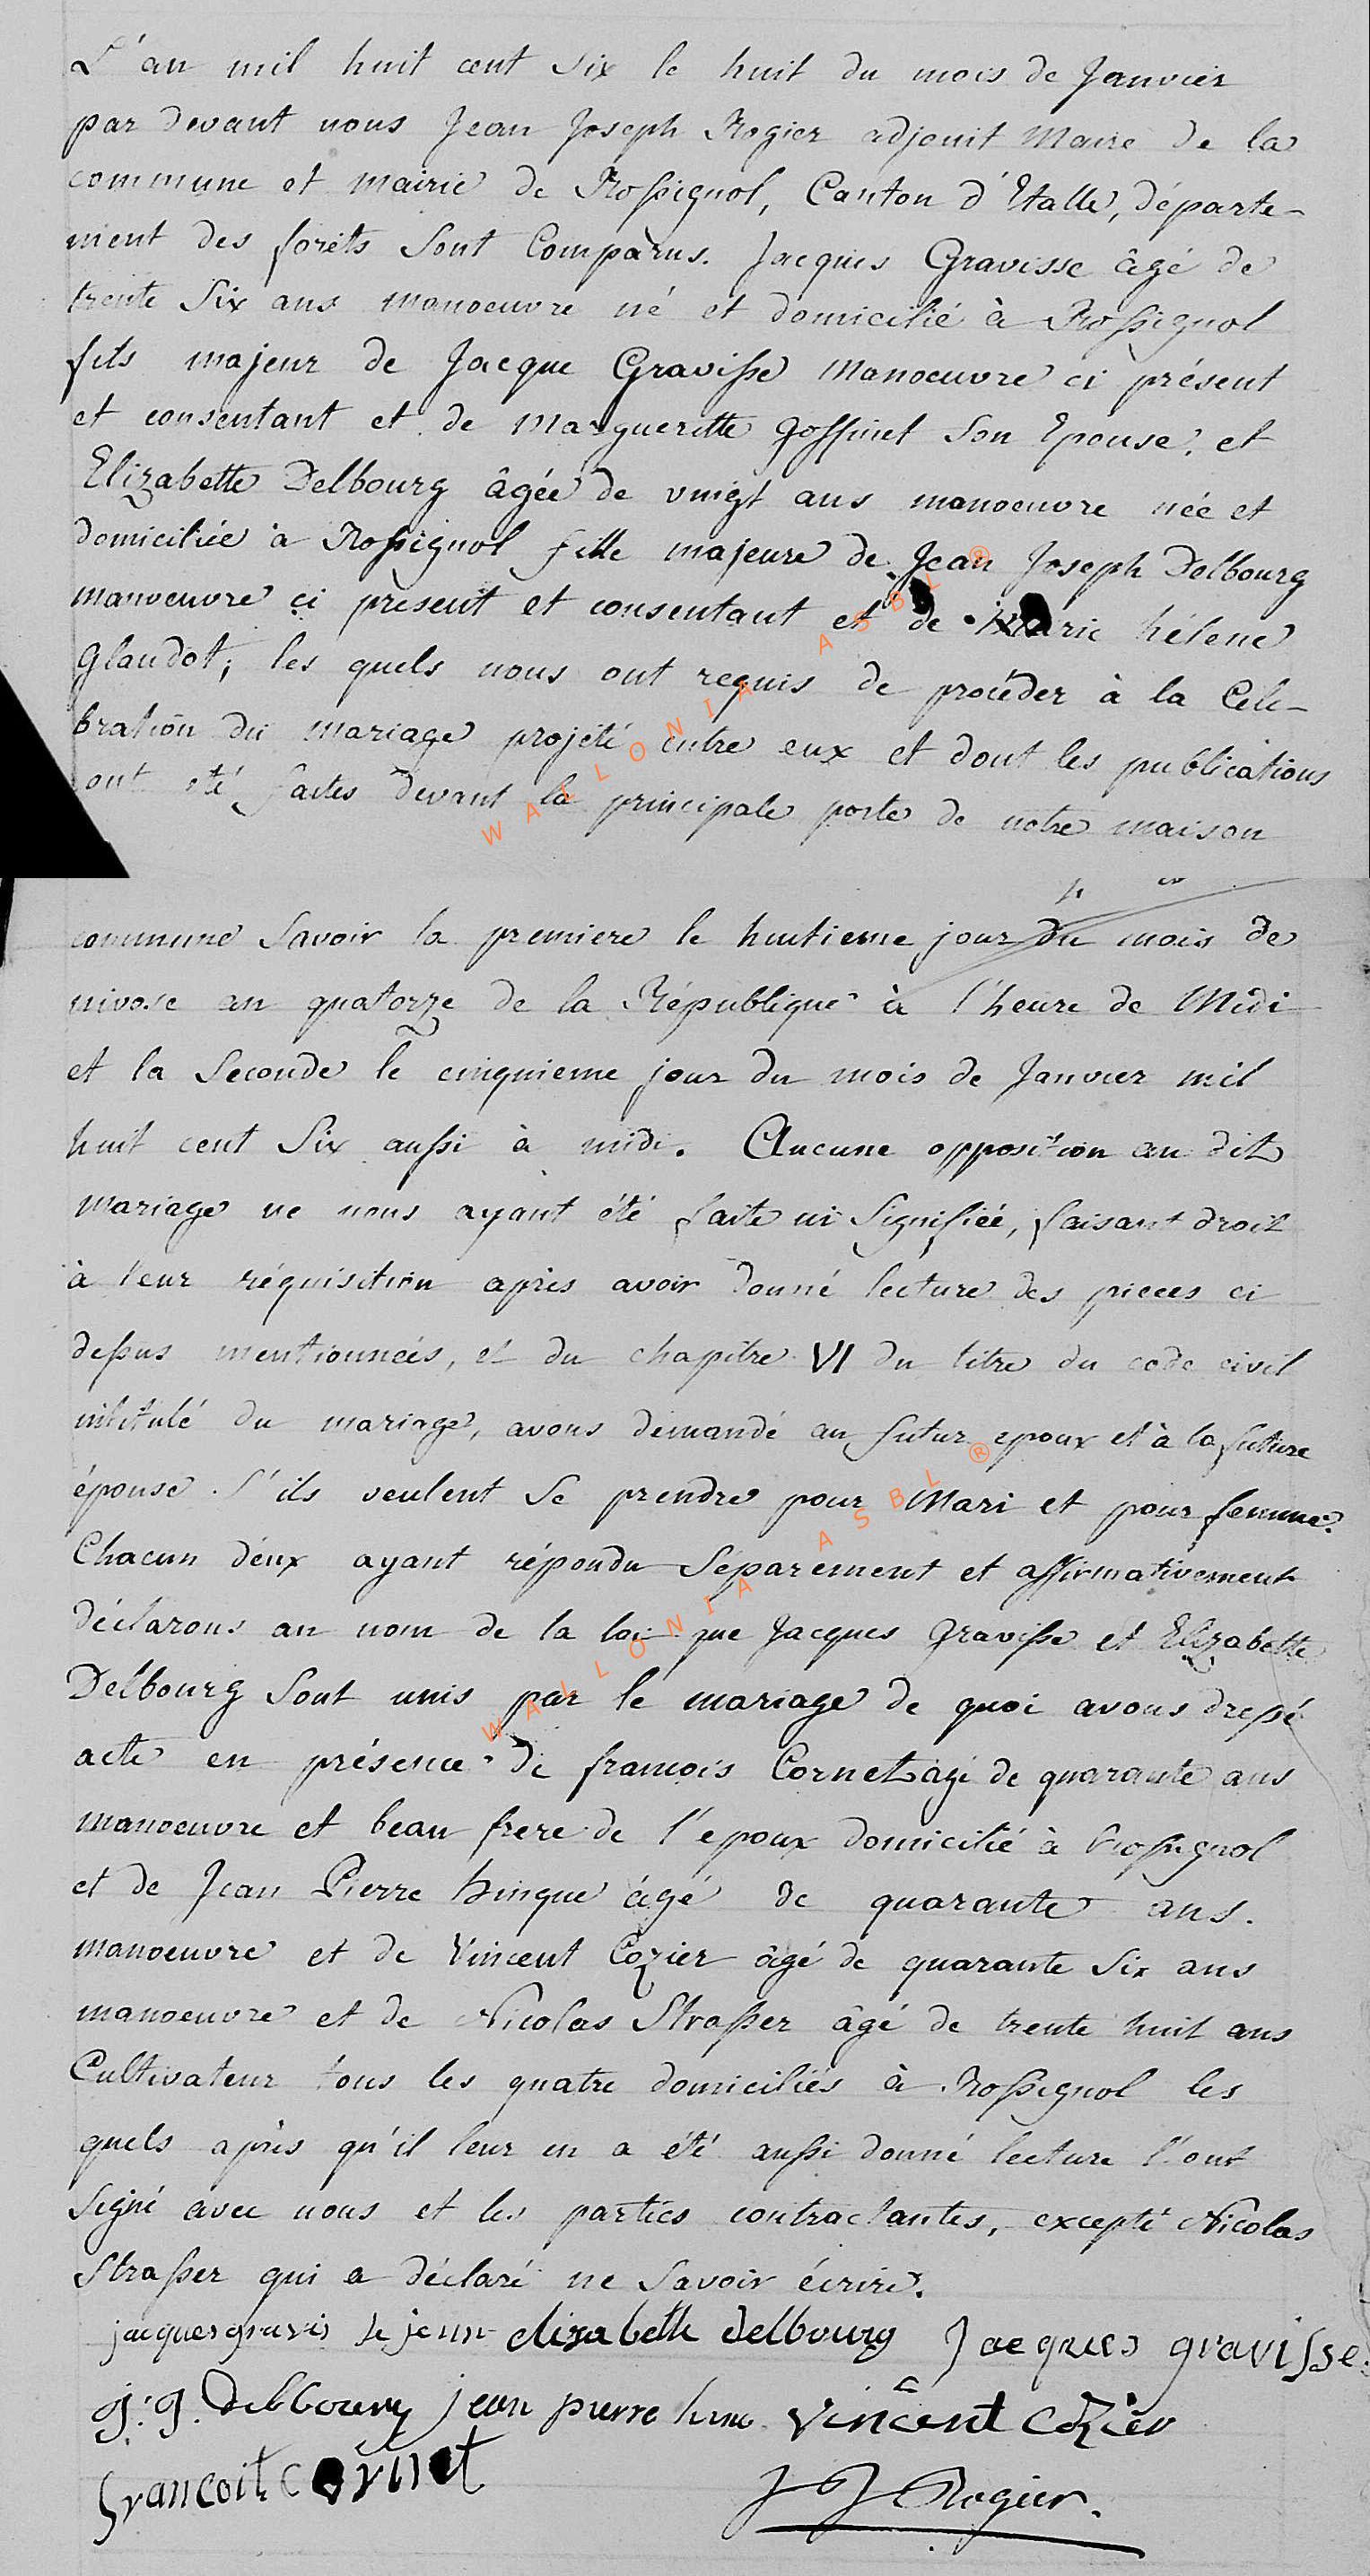 L'an mil huit cent six le huit du mois de Janvier
par devant nous Jean Joseph Rogier adjouit Maire de la
commune et mairie de Rossignol, Canton d'Etalle, départe-
ment des forêts sont Comparus. Jacques Gravisse âgé de
trente six ans manoeuvre né et domicilié à Rossignol
fils majeur de Jacque Gravisse Manoeuvre ci présent
et consentant et de Margueritte Goffinet son Epouse, et
Elizabette Delbourg âgée de vingt ans manoeuvre née et
domiciliée à Rossignol fille majeure de Jean Joseph Delbourg
manoeuvre ci présent et consentant et de Marie héléne
Glaudot; les quels nous ont requis de procéder à la Célé-
bration du mariage projété entre eux et dont les publications
ont été faites devant la principale porte de notre maison
commune savoir la premiere le huitieme jour du mois de
nivose an quatorze de la République à l'heure de Midi
et la seconde le cinquieme jour du mois de Janvier mil
huit cent six aussi à midi. Aucune opposition au dit
mariage ne nous ayant été faite ni signifiée, faisant droit
à leur réquisition après avoir donné lecture des pieces ci
dessus mentionnées, et du chapitre VI du titre du code civil
intitulé du mariage, avons demandé au futur epoux et à la future
épouse s'ils veulent se prendre pour Mari et pour femme.
Chacun déux ayant répondu séparement et affirmativement
déclarons au nom de la loi que Jacques Gravisse et Elizabette
Delbourg sont unis par le mariage de quoi avons dressé
acte en présence de francois Cornet agé de quarante ans
manoeuvre et beau frere de l'epoux domicilié à Rossignol
et de Jean Pierre hinque âgé de quarante ans.
manoeuvre et de Vincent Cozier âgé de quarante six ans
manoeuvre et de Nicolas Strasser âgé de trente huit ans
Cultivateur tous les quatre domiciliés à Rossignol les
quels après qu'il leur en a été aussi donné lecture l'ont
signé avec nous et les parties contractantes, excepté Nicolas
Strasser qui a déclaré ne savoir écrire.
jacques gravis le jeun elisabeth delbourg Jacques gravisse
j: j. delbourg jean pierre vincent cozier
francoit cornet
J J Rogier.
WALLONIA ASBL ®
WALLONIA ASBL ®